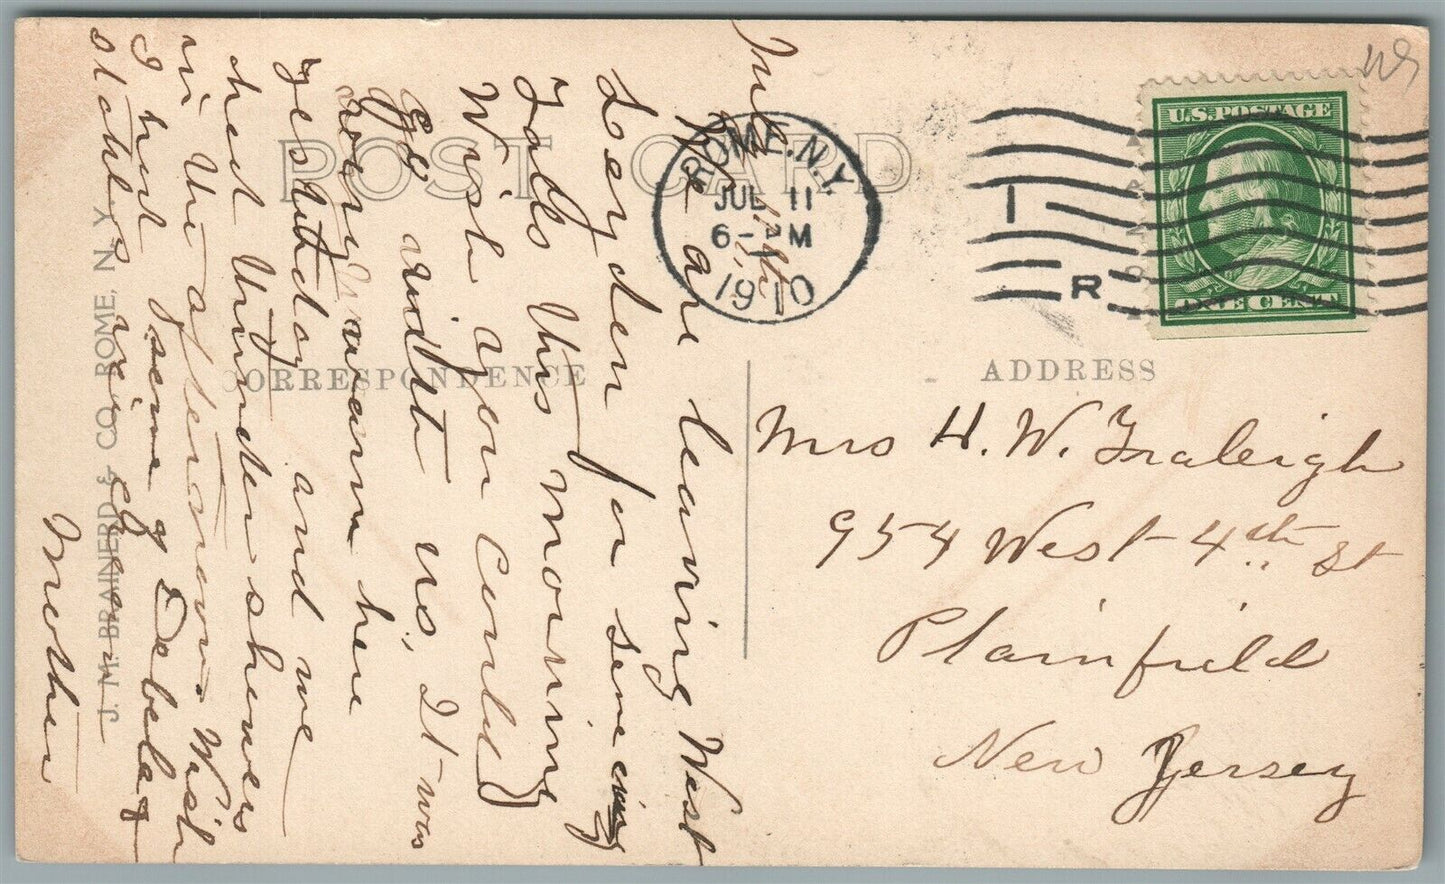 POST CARD
CORRESPONDENCE
ADDRESS
J. M. BRAINERD & CO. ROME, N. Y.
ROME, N.Y.
JUL 11
6-PM
1910
R
U.S. POSTAGE
ONE CENT
July 11th
We are leaving West
Leyden for
Falls this morning
Wish you could
go with us, It was
very warm here
yesterday and we
had thunder showers
in the afternoon Wish
I had some of
Mother
Mrs H. W. Fraleigh
954 West 4th St
Plainfield
New Jersey